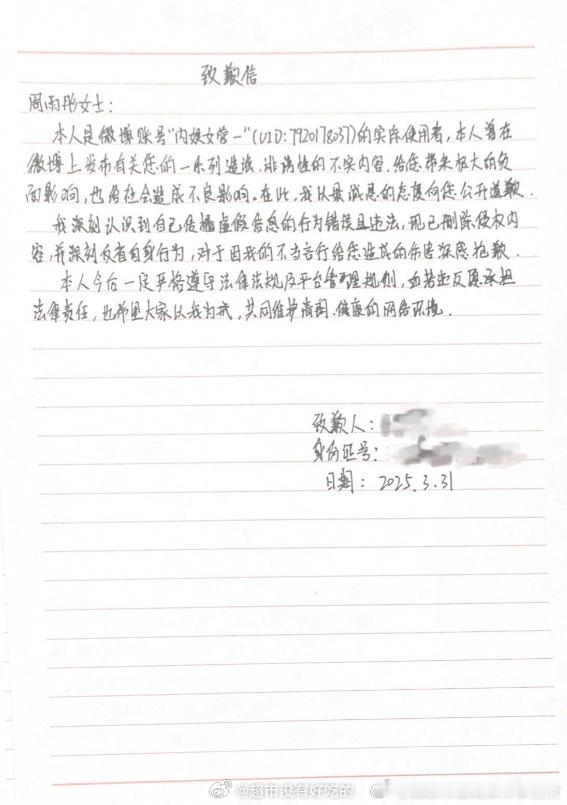 致歉信
周雨彤女士：
本人是微博账号"内娱文学一"(UID:7920178037)的实际使用者，本人曾在
微博上发布有关您的一系列造谣、诽谤性的不实内容，给您带来极大的负
面影响，也给社会造成不良影响。在此，我以最诚恳的态度向您公开道歉。
我深刻认识到自己传播虚假信息的行为错误且违法，现已删除侵权内
容，并深刻反省自身行为，对于因我的不当言行给您造成的伤害深感抱歉。
本人今后一定严格遵守法律法规及平台管理规则，如若违反愿承担
法律责任，也希望大家以我为戒，共同维护清朗、健康的网络环境。
致歉人：
身份证号：
日期：2025.3.31
@超市没有好吃的